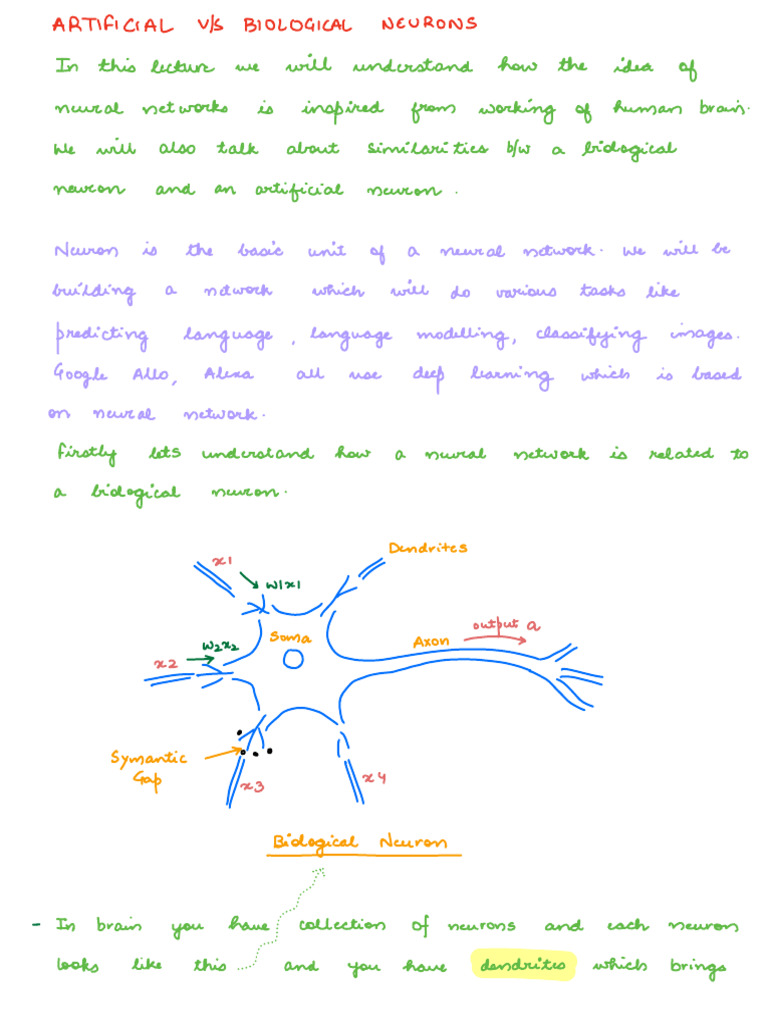 ARTIFICIAL V/S BIOLOGICAL NEURONS
In this lecture we will understand how the idea of
neural networks is inspired from working of human brain.
We will also talk about similarities b/w a biological
neuron and an artificial neuron.
Neuron is the basic unit of a neural network. We will be
building a network which will do various tasks like
predicting language, language modelling, classifying images.
Google Allo, Alexa all use deep learning which is based
on neural network.
Firstly lets understand how a neural network is related to
a biological neuron.
Dendrites
x1
w1x1
output a
Soma
Axon
w2x2
x2
Symantic
Gap
x3
x4
Biological Neuron
- In brain you have collection of neurons and each neuron
looks like this and you have dendrites which brings